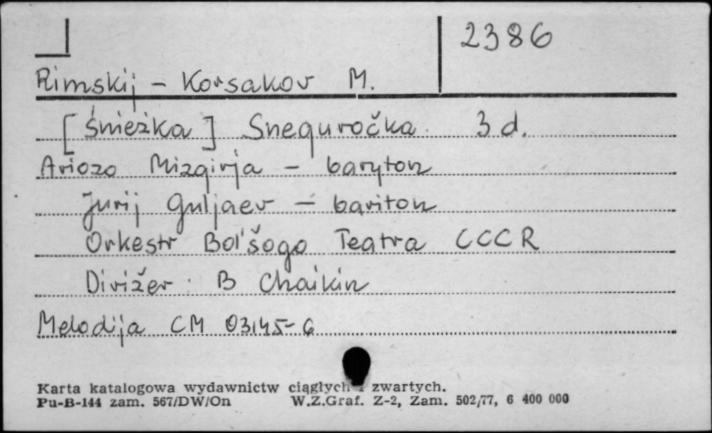 2386
Rimskij - Korsakov M.
[Śnieżka] Sneguročka. 3 d.
Ariozo Mizgirja - baryton
Jurij Guljaev - bariton
Orkestr Bol'šogo Teatra CCCR
Dirižer: B Chaikin
Melodija CM 03145-6
Karta katalogowa wydawnictw ciągłych i zwartych.
Pu-B-144 zam. 567/DW/On W.Z.Graf. Z-2, Zam. 502/77, 6 400 000